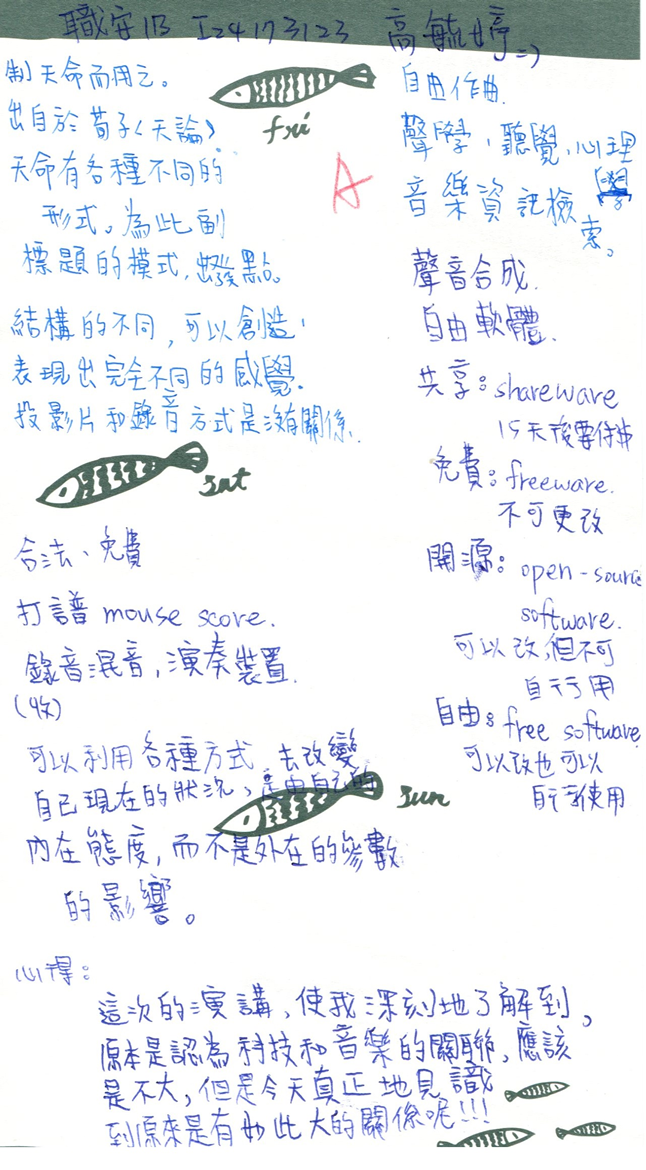 職安1B I24173123 高毓婷=)
制天命而用之。
出自於荀子〈天論〉
天命有各種不同的
形式。為此副
標題的模式,出發點。
結構的不同,可以創造,
表現出完全不同的感覺.
投影片和錄音方式是沒有關係.
fri
A
sat
合法、免費
打譜 mouse score.
錄音混音,演奏裝置.
(收)
可以利用各種方式,去改變
自己現在的狀況,是由自己的
sun
內在態度,而不是外在的參數
的影響。
自由作曲.
聲學,聽覺,心理
學
音樂資訊檢
索。
聲音合成.
自由軟體.
共享:shareware
15天後要付$
免費:freeware.
不可更改
開源:open-source
software.
可以改,但不可
自行用
自由:free software
可以改也可以
自行使用
心得:
這次的演講,使我深刻地了解到,
原本是認為科技和音樂的關聯,應該
是不大,但是今天真正地見識
到原來是有如此大的關係呢!!!